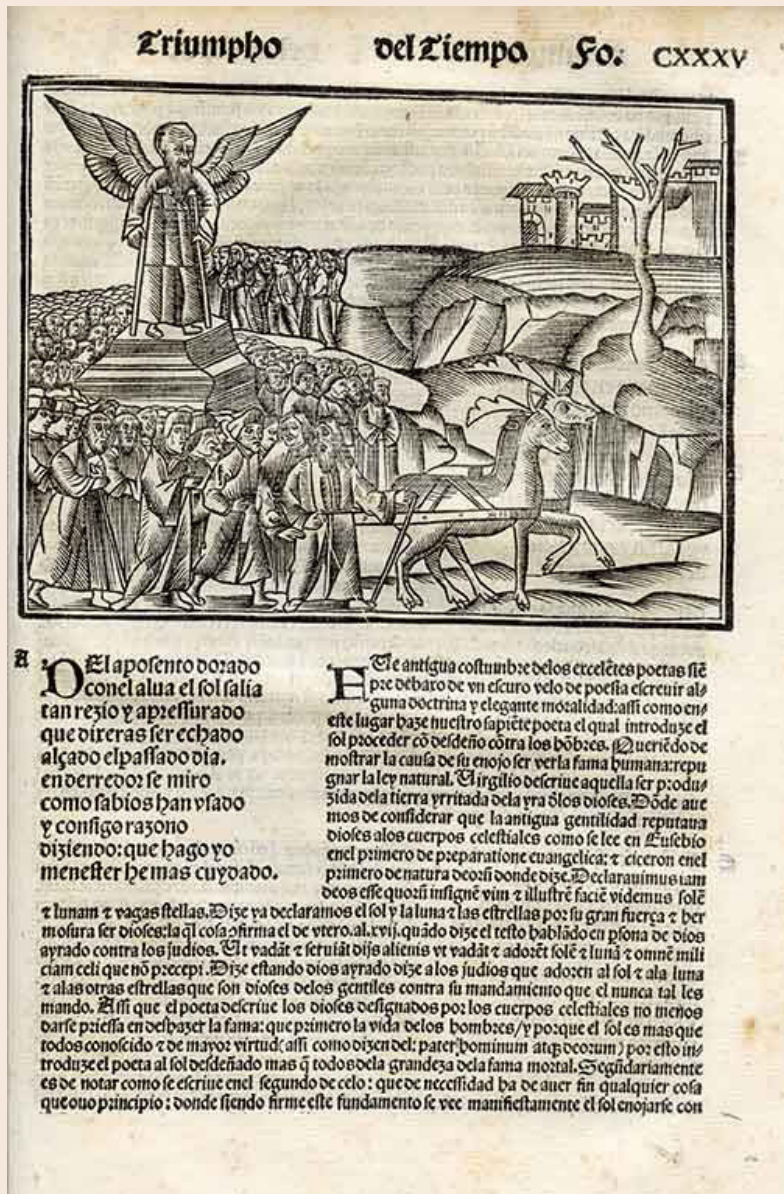 Triumpho del Tiempo Fo. CXXXV
A
DEl aposento dorado
conel alua el sol salia
tan rezio y apressurado
que dixeras ser echado
alçado elpassado dia.
en derredor se miro
como sabios han vsado
y consigo razono
diziendo: que hago yo
menester he mas cuydado.
antigua costumbre delos excelẽtes poetas siẽ
pre debaxo de vn escuro velo de poesia escreuir al-
guna doctrina y elegante moralidad: assi como en-
este lugar haze nuestro sapiẽte poeta el qual introduze el
sol proceder cõ desdeño cõtra los hõbres. Queriẽdo de
mostrar la causa de su enojo ser ver la fama humana: repu
gnar la ley natural. Virgilio descriue aquella ser produ-
zida dela tierra yrritada dela yra dlos dioses. Dõde aue
mos de considerar que la antigua gentilidad reputaua
dioses alos cuerpos celestiales como se lee en Eusebio
enel primero de preparatione euangelica: ⁊ ciceron enel
primero de natura deorũ donde dize. Declarauimus iam
deos esse quorũ insignẽ vim ⁊ illustrẽ faciẽ videmus solẽ
⁊ lunam ⁊ vagas stellas. Dize ya declaramos el sol y la luna ⁊ las estrellas por su gran fuerça ⁊ her
mosura ser dioses: la q̃l cosa ↄfirma el de vtero. al. xvij. quãdo dize el testo hablãdo en psona de dios
ayrado contra los judios. Ut vadãt ⁊ seruiãt dijs alienis vt vadãt ⁊ adorẽt solẽ ⁊ lunã ⁊ omnẽ mili
ciam celi que nõ precepi. Dize estando dios ayrado dize a los judios que adoren al sol ⁊ ala luna
⁊ alas otras estrellas que son dioses delos gentiles contra su mandamiento que el nunca tal les
mando. Assi que el poeta descriue los dioses designados por los cuerpos celestiales no menos
darse priessa en deshazer la fama: que primero la vida delos hombres/y porque el sol es mas que
todos conoscido ⁊ de mayor virtud (assi como dizen del: pater hominum atq̃ deorum) por esto in-
troduze el poeta al sol desdeñado mas q̃ todos dela grandeza dela fama mortal. Segũdariamente
es de notar como se escriue enel segundo de celo: que de necessidad ha de auer fin qualquier cosa
que ouo principio: donde siendo firme este fundamento se vee manifiestamente el sol enojarse con